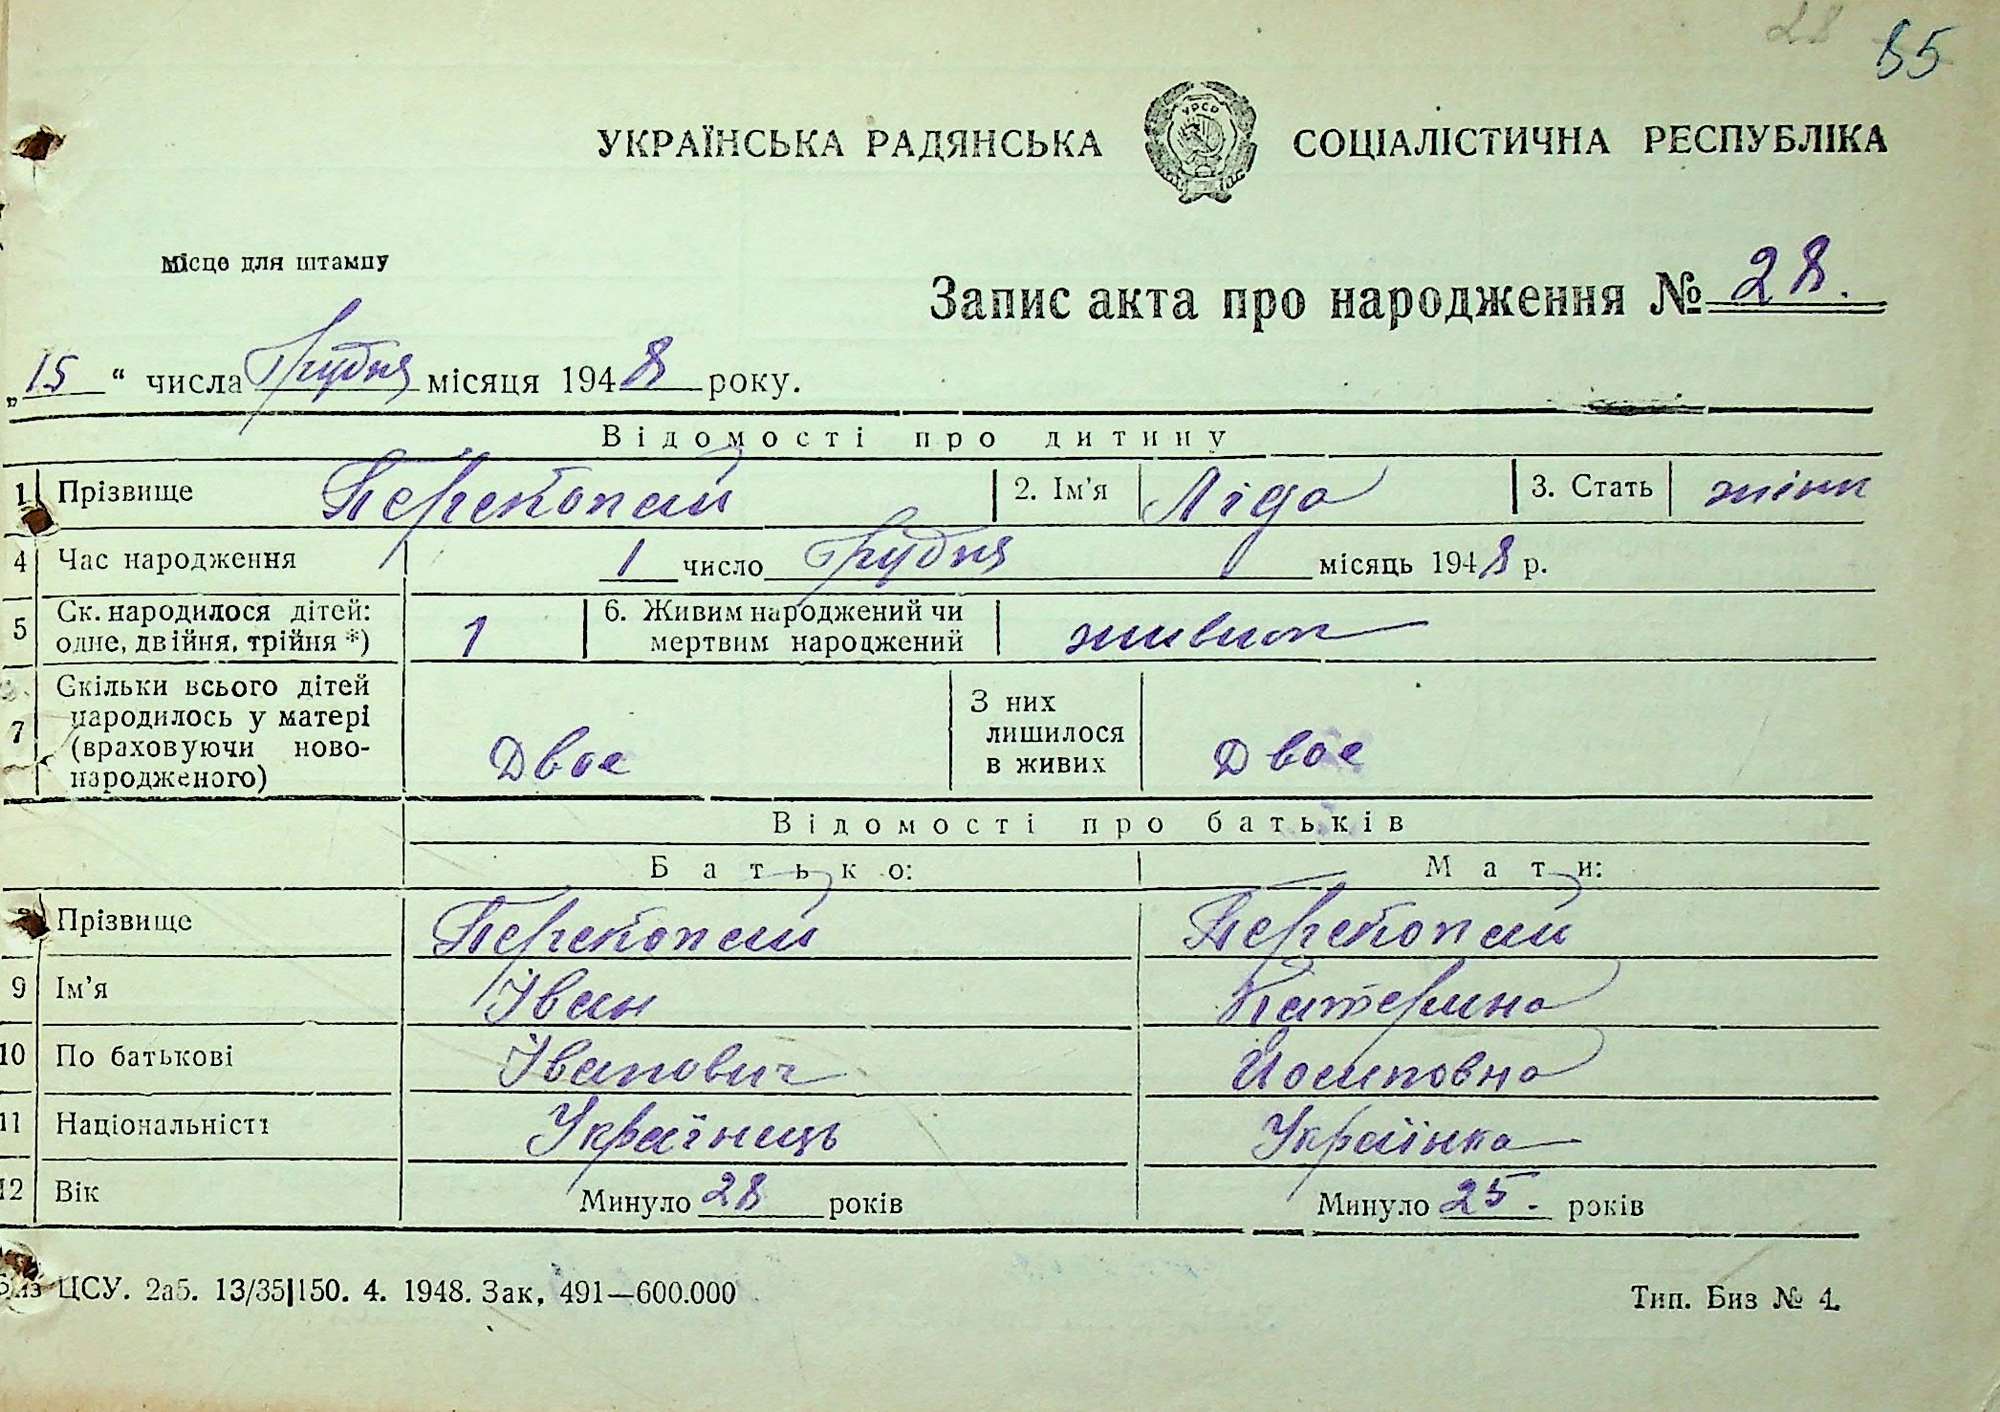 28 55
УКРАЇНСЬКА РАДЯНСЬКА СОЦІАЛІСТИЧНА РЕСПУБЛІКА
УРСР
Місце для штампу
Запис акта про народження № 28.
„15 “ числа Грудня місяця 1948 року.
Відомості про дитину
1 Прізвище Перекопай 2. Ім'я Ліда 3. Стать жіноч
4 Час народження 1 число Грудня місяць 1948 р.
5 Ск. народилося дітей: одне, двійня, трійня *) 1 6. Живим народжений чи мертвим народжений живим
7 Скільки всього дітей народилось у матері (враховуючи новонародженого) Двоє З них лишилося в живих Двоє
Відомості про батьків
Батько: Мати:
Прізвище Перекопай Перекопай
9 Ім'я Іван Катерина
10 По батькові Іванович Йосиповна
11 Національність Українець Українка
12 Вік Минуло 28 років Минуло 25. років
ЦСУ. 2а5. 13/35|150. 4. 1948. Зак, 491—600.000 Тип. Биз № 4.